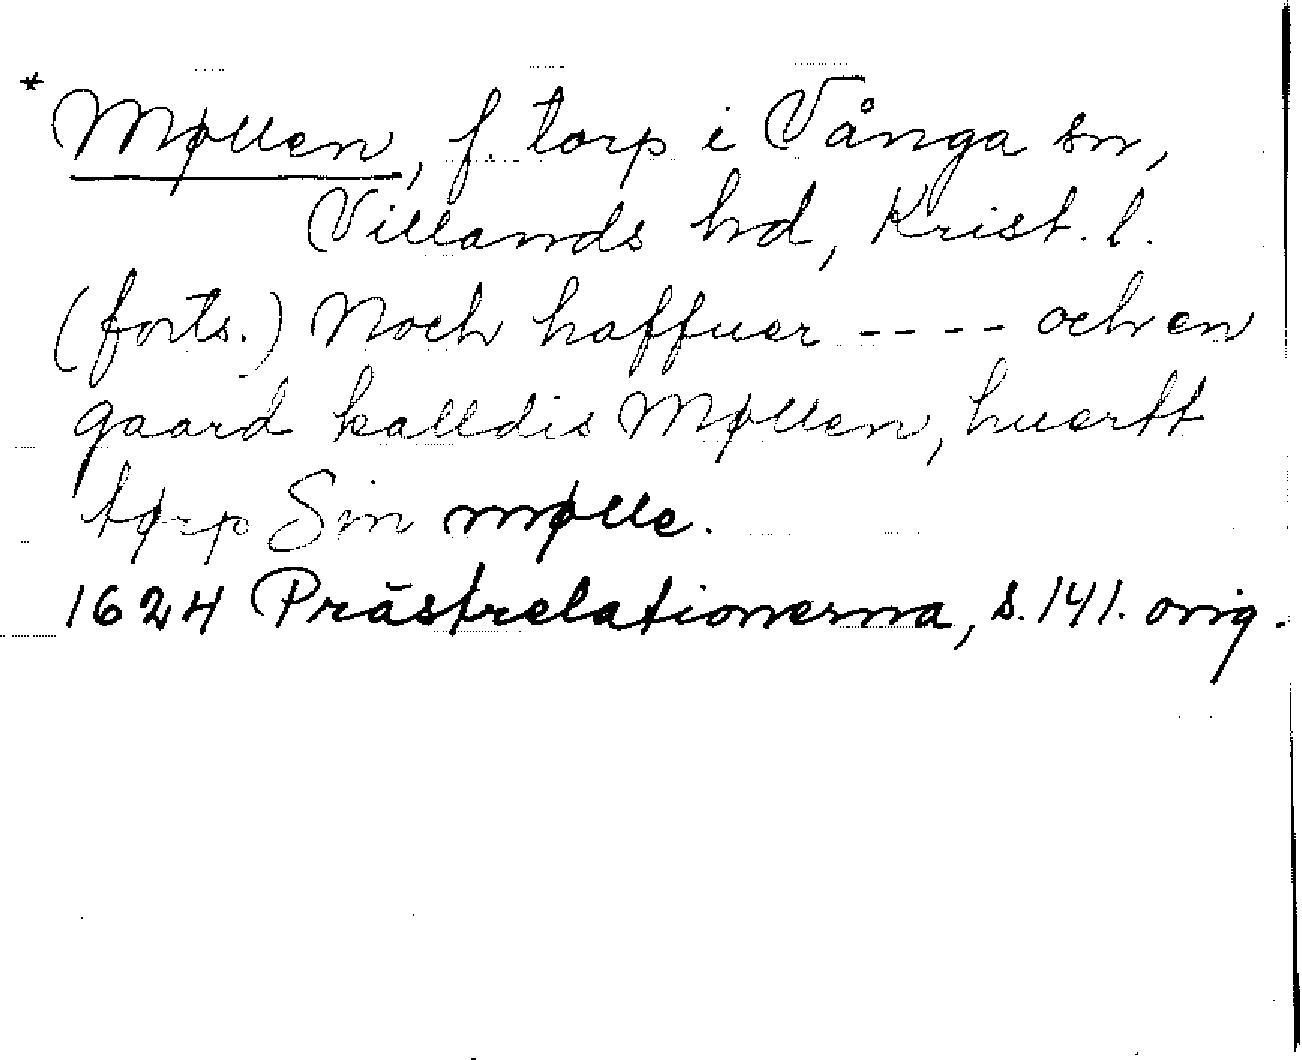 * Møllen, f. torp i Vånga sn,
Villands hd, Krist. l.
(forts.) Noch haffuer ---- och en
gaard kalldis Møllen, huertt
tørp Sin mølle.
1624 Prästrelationerna, s. 141. orig.